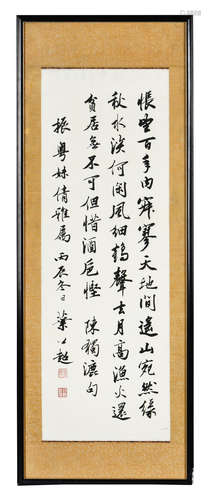 悵望百年內寂寥天地間遠山宛然綠
秋水淡何閑風細鶴聲去月高漁火還
貧居無不可但惜酒卮慳 陳獨漉句
振粵妹倩雅屬 丙辰冬日 葉公超